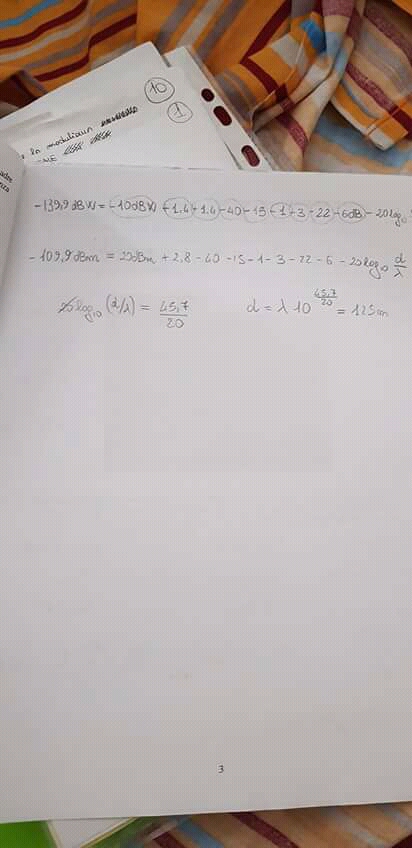 10
1
la moduliacun
NE
-139,9 dBW = -10dBW + 1.4 + 1.4 - 40 - 15 - 1 - 3 - 22 - 6dB - 20log10
-109,9 dBm = 20dBm + 2,8 - 40 - 15 - 1 - 3 - 22 - 6 - 20log10 d/λ
20 log10 (d/λ) = 45,7/20 d = λ 10^45,7/20 = 125m
3